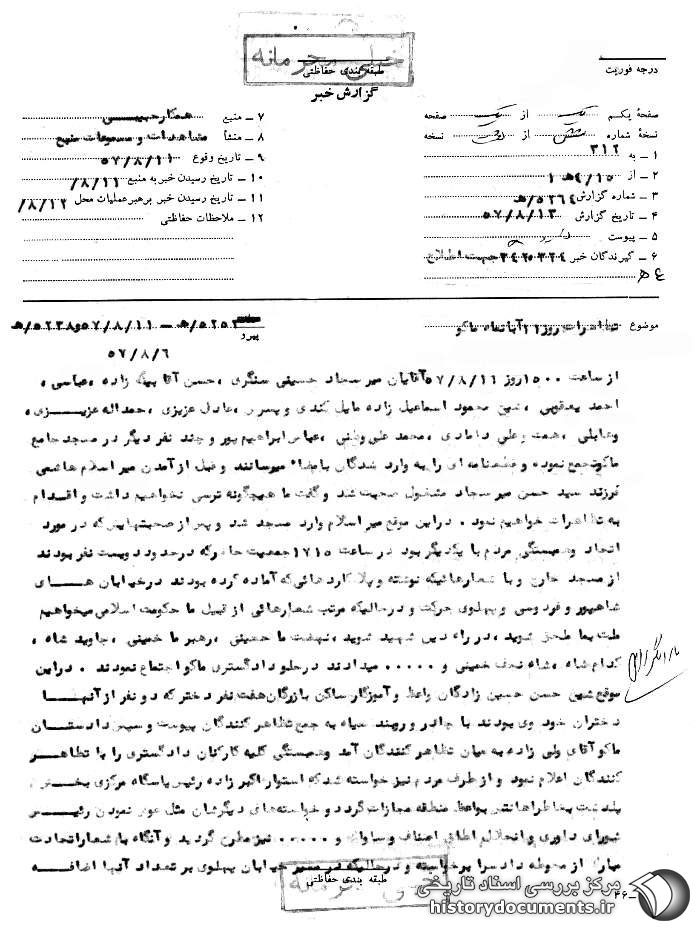 خیلی محرمانه
طبقه بندی حفاظتی
گزارش خبر
درجه فوریت
صفحهٔ یکم از صفحه
نسخهٔ شماره از نسخه
۱ ـ به ۳۱۲
۲ ـ از ۴/۱۵ هـ ۱
۳ ـ شماره گزارش ۵۲۶۴/هـ
۴ ـ تاریخ گزارش ۵۷/۸/۱۳
۵ ـ پیوست
۶ ـ گیرندگان خبر جهت اطلاع
۷ ـ منبع همکار حبیبی
۸ ـ منشأ مشاهدات و مسموعات منبع
۹ ـ تاریخ وقوع ۵۷/۸/۱۱
۱۰ ـ تاریخ رسیدن خبر به منبع ۸/۱۱/
۱۱ ـ تاریخ رسیدن خبر برهبر عملیات محل ۸/۱۲/
۱۲ ـ ملاحظات حفاظتی
موضوع تظاهرات روز ۱۱ آبانماه ماکو
پیرو ۵۲۵۲/هـ ـ ۵۷/۸/۱۱ و ۵۲۳۸/هـ
۵۷/۸/۶
از ساعت ۱۵۰۰ روز ۵۷/۸/۱۱ آقایان میر سجاد حسینی سنگری ، حسن آقا بیگ زاده ، عباسی ،
احمد یعقوبی ، شیخ محمود اسماعیل زاده مایل کندی و پسر و ، عادل عزیزی ، حمداله عزیزی ،
همت وعلی دامادی ، محمد علی ، عباس ابراهیم پور و چند نفر دیگر در مسجد جامع
ماکو تجمع نموده و قطعنامه ای را به وارد شدگان بامضاء میرسانند و قبل از آمدن میر اسلام هاشمی
فرزند سید حسن میر سجاد مشغول صحبت شد و گفت ما هیچگونه ترسی نخواهیم داشت و اقدام
به تظاهرات خواهیم نمود . در این موقع میر اسلام وارد مسجد شد و پس از صحبتهایش که در مورد
اتحاد و همبستگی مردم با یکدیگر بود در ساعت ۱۷۱۵ جمعیت حاضر که در حدود دویست نفر بودند
از مسجد خارج و با شعارهائیکه نوشته و پلاکاردهائی که آماده کرده بودند در خیابان های
شاهپور و فردوسی و پهلوی حرکت و در حالیکه مرتب شعارهائی از قبیل ما حکومت اسلامی میخواهیم
ملت بما ملحق شوید ، در راه دین شهید شوید ، نهضت ما حسینی ، رهبر ما خمینی ، جاوید شاه ،
کدام شاه ، شاه نجف خمینی و ۰۰۰۰۰ میدادند در جلو دادگستری ماکو اجتماع نمودند . در این
موقع شیخ حسن حسین زادگان واعظ و آموزگار ساکن بازرگان هفت نفر دختر که دو نفر از آنها
دختران خود وی بودند با چادر و روبند سیاه به جمع تظاهر کنندگان پیوست و سپس دادستان
ماکو آقای ولی زاده به میان تظاهر کنندگان آمد و همبستگی کلیه کارکنان دادگستری را با تظاهر
کنندگان اعلام نمود و از طرف مردم نیز خواسته شد که استوار اکبر زاده رئیس پاسگاه مرکزی بخش
پلدشت بخاطر اهانتش بواعظ منطقه مجازات گردد و خواسته های دیگرشان مثل عوض نمودن رئیس
شورای داوری و انحلال اطاق اصناف و ساواک و ۰۰۰۰۰ نیز مطرح گردید و آنگاه با شعار اتحادت
مبارک از محوطه دادسرا برخاسته و در حالیکه در مسیر خیابان پهلوی بر تعداد آنها اضافه
طبقه بندی حفاظتی
خیلی محرمانه
۴۶ـ
مرکز بررسی اسناد تاریخی
historydocuments.ir